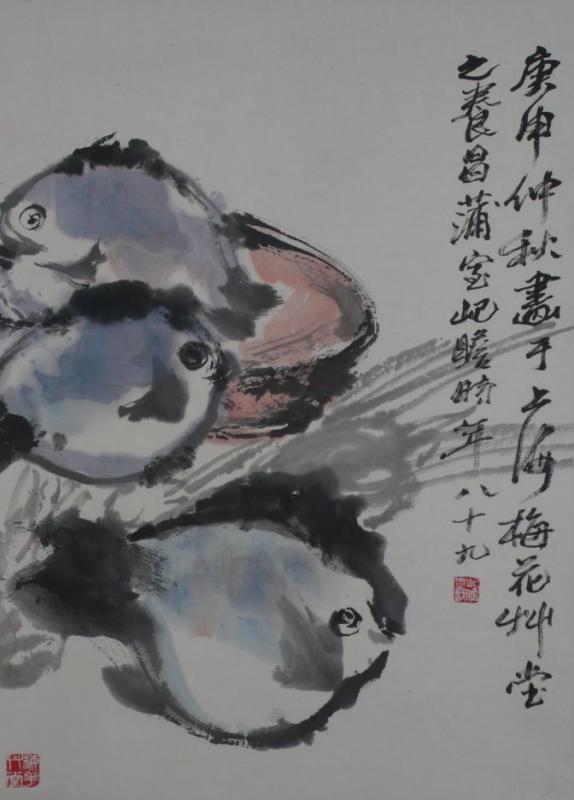 庚申仲秋畫于上海梅花艸堂
之養昌蒲室屺瞻時年八十九